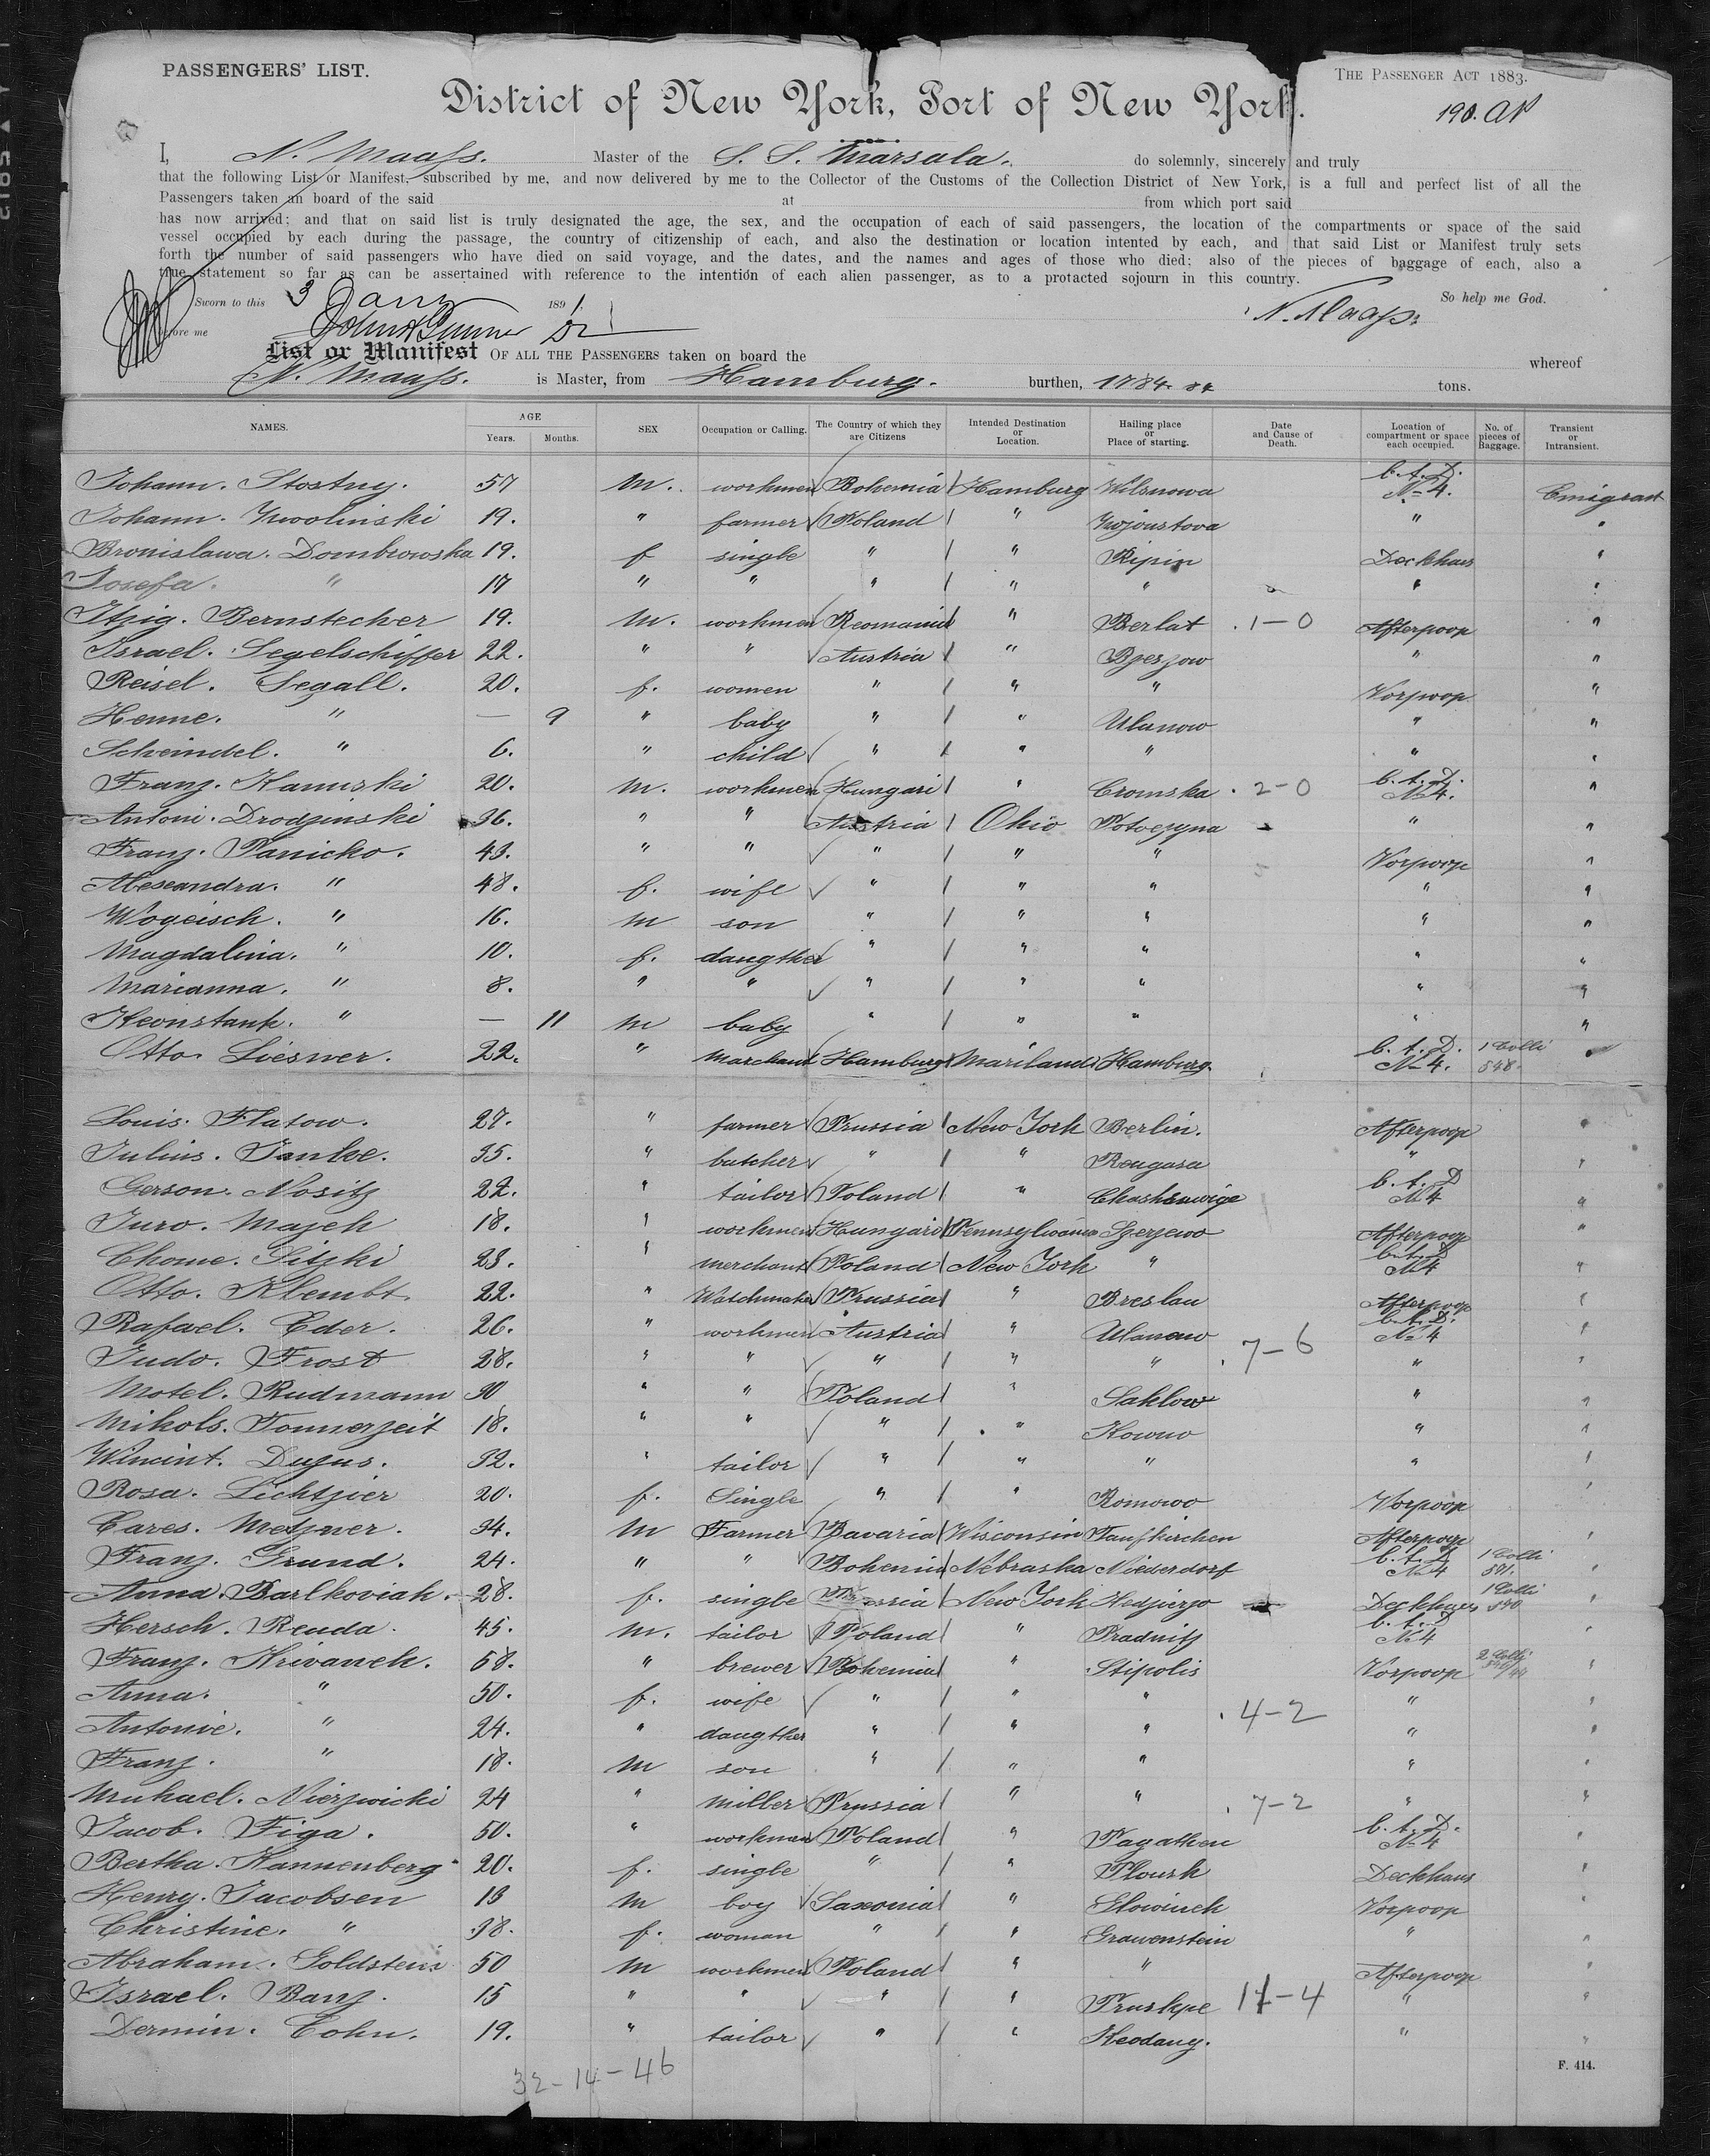 PASSENGERS' LIST.
THE PASSENGER ACT 1883.
District of New York, Port of New York.
190.
I, N. Maass. Master of the S. S. Marsala. do solemnly, sincerely and truly
that the following List or Manifest, subscribed by me, and now delivered by me to the Collector of the Customs of the Collection District of New York, is a full and perfect list of all the
Passengers taken an board of the said at from which port said
has now arrived; and that on said list is truly designated the age, the sex, and the occupation of each of said passengers, the location of the compartments or space of the said
vessel occupied by each during the passage, the country of citizenship of each, and also the destination or location intented by each, and that said List or Manifest truly sets
forth the number of said passengers who have died on said voyage, and the dates, and the names and ages of those who died; also of the pieces of baggage of each, also a
true statement so far as can be assertained with reference to the intention of each alien passenger, as to a protacted sojourn in this country.
Sworn to this 3 Jany 1891. So help me God.
before me N. Maass.
List or Manifest OF ALL THE PASSENGERS taken on board the whereof
N. Maass. is Master, from Hamburg. burthen, 1884. tons.
NAMES. AGE Years. Months. SEX Occupation or Calling. The Country of which they are Citizens Intended Destination or Location. Hailing place or Place of starting. Date and Cause of Death. Location of compartment or space each occupied. No. of pieces of Baggage. Transient or Intransient.
Johann. Stostny. 57 M. workmen Bohemia Hamburg Wilsnowa b.t.D. No 4. Emigrant
Johann. Zwolinski 19. " farmer Poland " " "
Bronislawa. Dombrowska 19. f single " " Ripin Deckhaus "
Josefa. " 17 " " " " " " "
Itzig. Bernstecher 19. M. workmen Reomania " Berlat . 1-0 Afterpoop "
Israel. Segelschiffer 22. " " Austria " " "
Reisel. Segall. 20. f. women " " " Vorpoop "
Henne. " — 9 " baby " " Ulanow " "
Scheindel. " 6. " child " " " " "
Franz. Kamuski 20. M. workmen Hungari " Cromska . 2-0 b.t.D. No 4. "
Antoni. Drodzinski 36. " " Austria Ohio " "
Franz. Panicko. 43. " " " " " Vorpoop "
Alexandra. " 48. f. wife " " " " "
Wogeisch. " 16. M son " " " " "
Magdalina. " 10. f. daugther " " " " "
Marianna. " 8. " " " " " " "
Keonstank. " — 11 M baby " " " " "
Otto. Liesner. 22. " Marchant Hamburg Mariland Hamburg. b.t.D. No 4. 1 Colli 548.
Louis. Flatow. 27. " farmer Prussia New York Berlin. Afterpoop "
Julius. Janke. 35. " butcher " " Rougasa " "
Gerson. Nositz 22. " tailor Poland " b.t.D No 4 "
Juro. Majeh 18. " workmen Hungari Pennsylwania Szerzewo Afterpoop "
Chome. Sitzki 23. " Merchant Poland New York " b.t.D No 4 "
Otto. Klembt. 22. " Watchmaker Prussia " Breslau Afterpoop "
Rafael. Eder. 26. " workmen Austria " Ulanow b.t.D. No 4 "
Judo. Frost 28. " " " " " . 7-6 " "
Motel. Rudmann 30 " " Poland " Saklow " "
Mikols. Tonnerzeit 18. " " " " Kowno " "
Wincint. Duzus. 32. " tailor " " " " "
Rosa. Lichtzier 20. f. Single " " Romowo Vorpoop "
Cares. Metzner. 34. M Farmer Bavaria Wisconsin Taufkirchen Afterpoop "
Franz. Grund. 24. " " Bohemia Nebraska Niederdorf b.t.D No 4 1 Colli 571. "
Anna. Barlkoviah. 28. f. single New York Hedzierzo Deckhaus 1 Colli 540 "
Hersch. Renda. 45. M. tailor Poland " Pradnitz b.t.D No 4 "
Franz. Krivaneh. 58. " brewer Bohemia " Stipolis Vorpoop 2 Colli "
Anna. " 50. f. wife " " " . 4-2 " "
Antonie. " 24. " daugther " " " " "
Franz. " 18. M son " " " " "
Michael. Nierzwicki 24 " Miller Prussia " " . 7-2 " "
Jacob. Figa. 50. " workman Poland " Pagathen b.t.D. No 4 "
Bertha. Kannenberg 20. f. single " " Plourk Deckhaus "
Henry. Jacobsen 13 M boy Saxonia " Slowinek Vorpoop "
Christine. " 38. f. woman " " Grawenstein " "
Abraham. Goldstein 50 M workmen Poland " " Afterpoop "
Israel. Banz. 15 " " " " Pruskpe 11-4 " "
Dermin. Cohn. 19. " tailor " " Keodany. " "
32-14-46
F. 414.